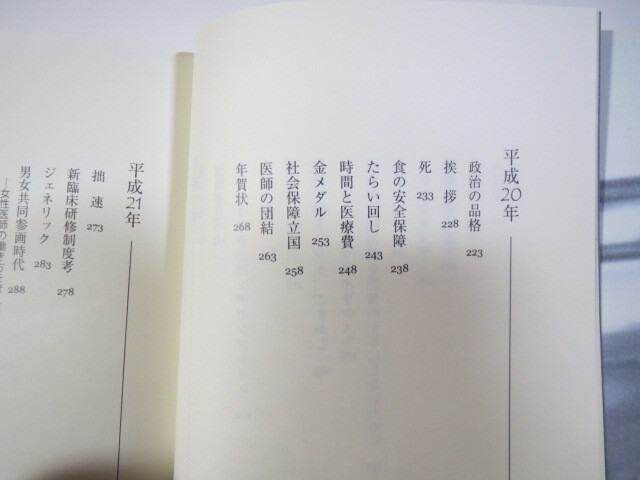 平成20年
政治の品格 223
挨拶 228
死 233
食の安全保障 238
たらい回し 243
時間と医療費 248
金メダル 253
社会保障立国 258
医師の団結 263
年賀状 268
平成21年
拙速 273
新臨床研修制度考 278
ジェネリック 283
男女共同参画時代 288
―女性医師の働き方